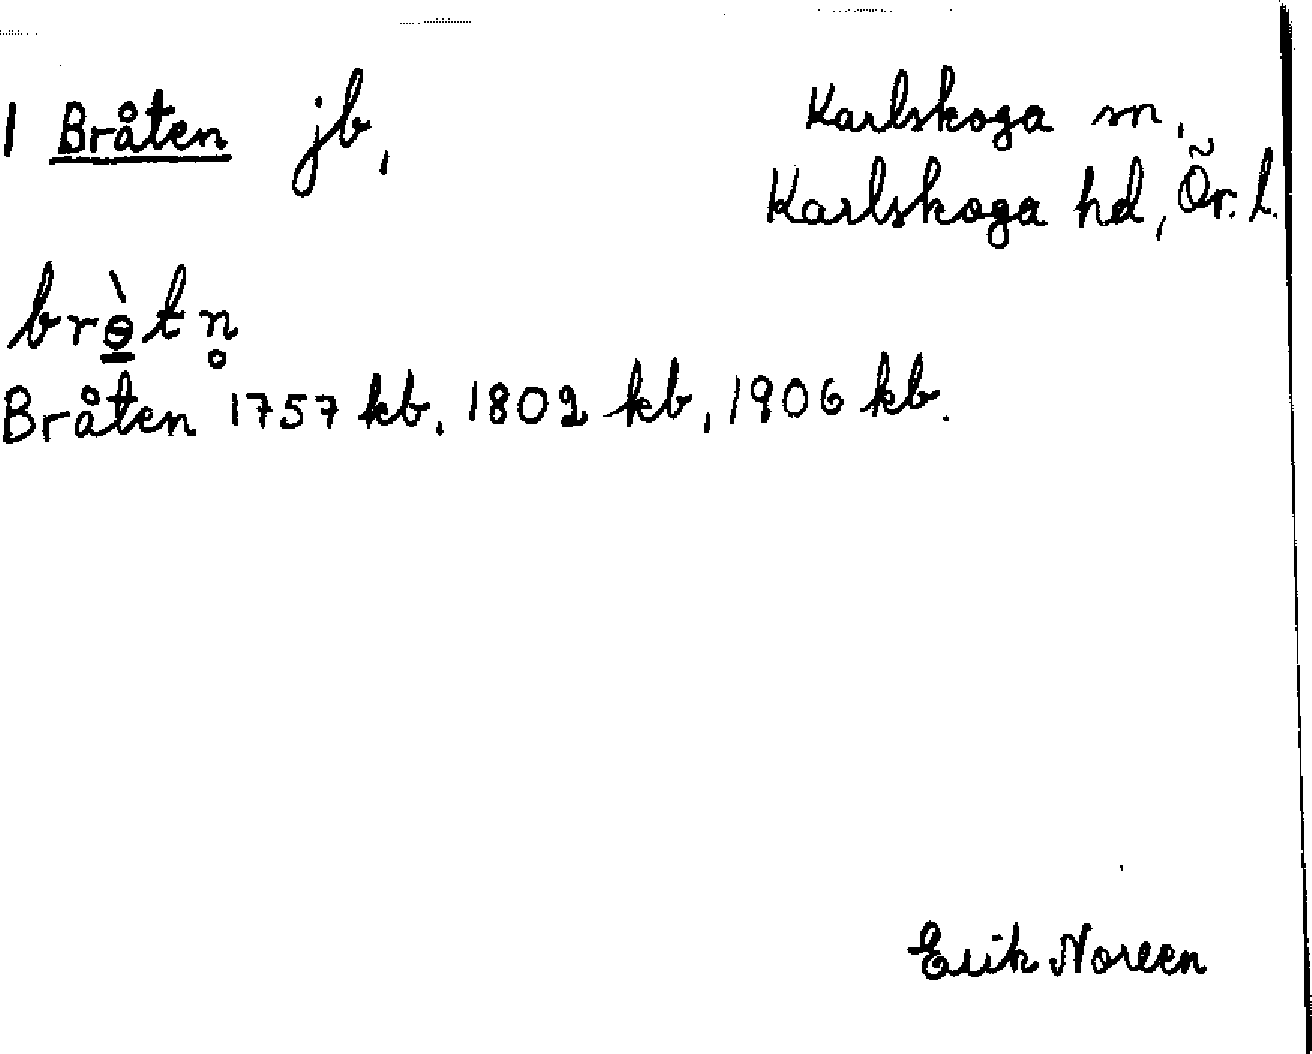 1 Bråten jb, Karlskoga sn,
Karlskoga hd, Ör. l.
brɵ̲̀tn̥
Bråten 1757 kb, 1802 kb, 1906 kb.
Erik Noreen